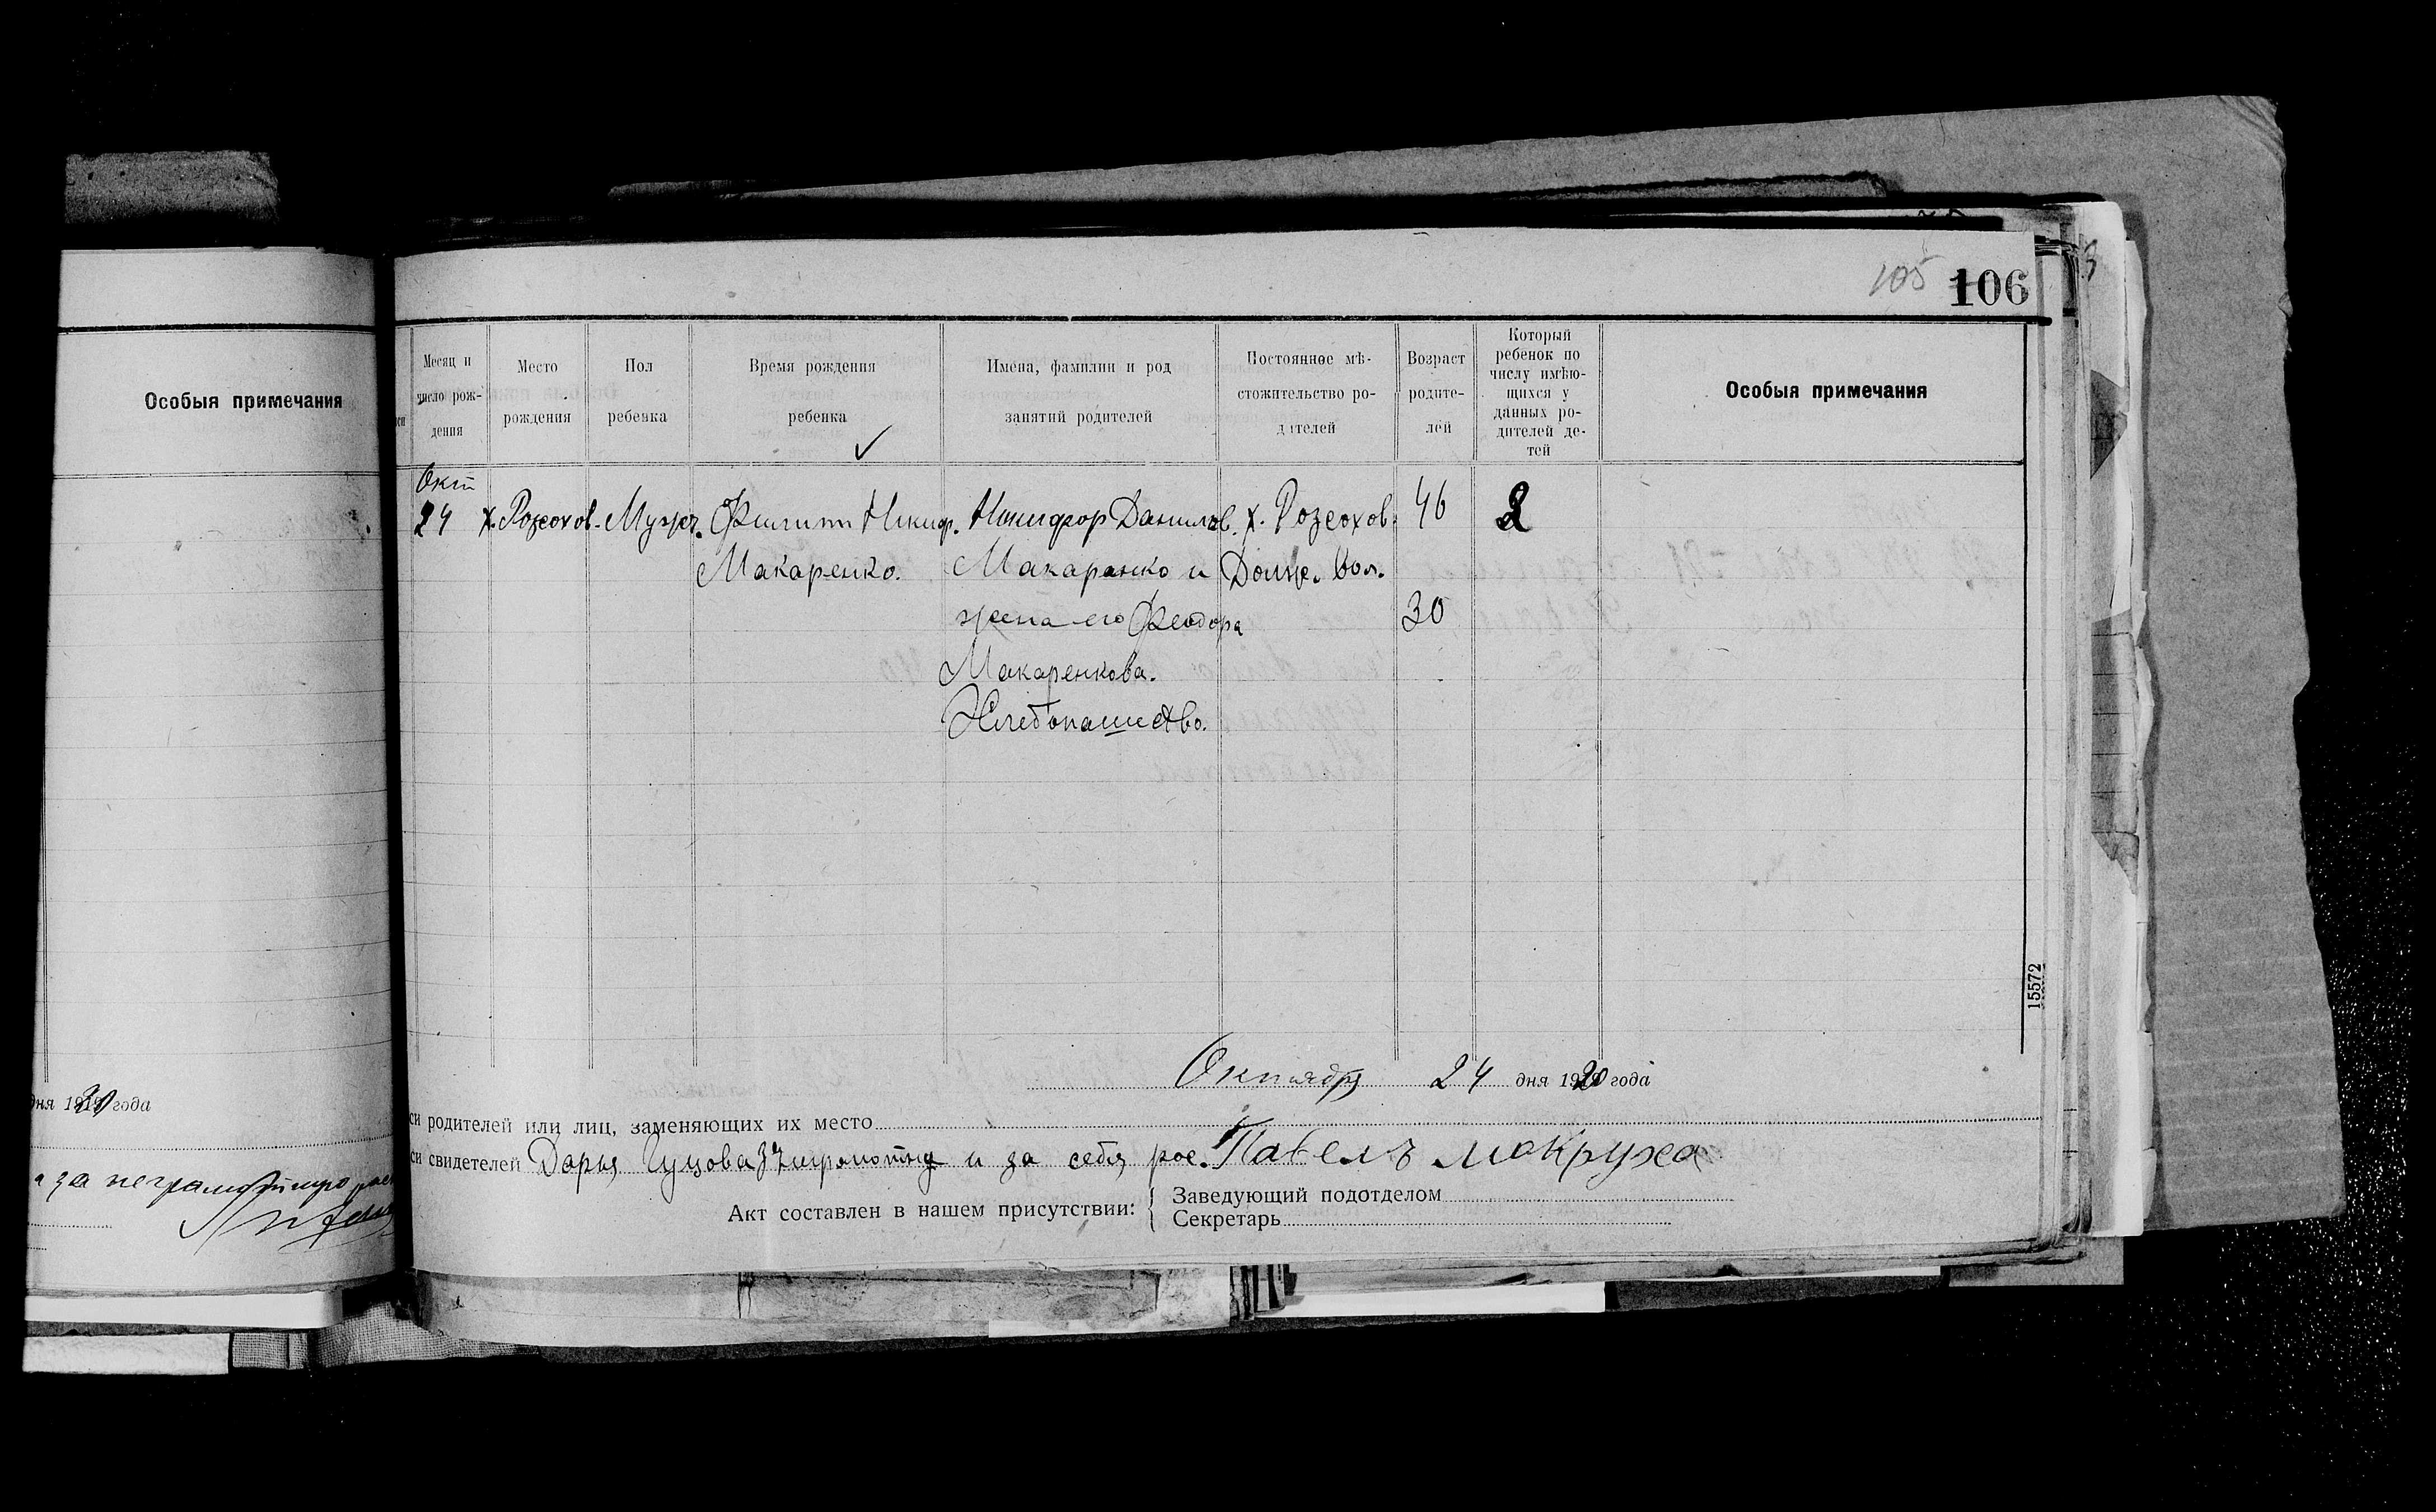 105 106
Особыя примечания
Месяц и число рождения
Место рождения
Пол ребенка
Время рождения ребенка
Имена, фамилии и род занятий родителей
Постоянное мѣстожительство родителей
Возраст родителей
Который ребенок по числу имѣющихся у данных родителей детей
Особыя примечания
Окт
24 х. Розсохов. Мужч. Филипп Никиф. Никифор Данилов. х. Розсохов. 46 2
Макаренко. Макаренко и Донце. Вол.
жена его Феодора 30
Макаренкова.
Хлебопашество.
15572
Октября 24 дня 1920 года
дня 1920 года
си родителей или лиц, заменяющих их место
си свидетелей Дарья и за себя рос. Павелъ мокруха
за неграмотную
Акт составлен в нашем присутствии: Заведующий подотделом
Секретарь